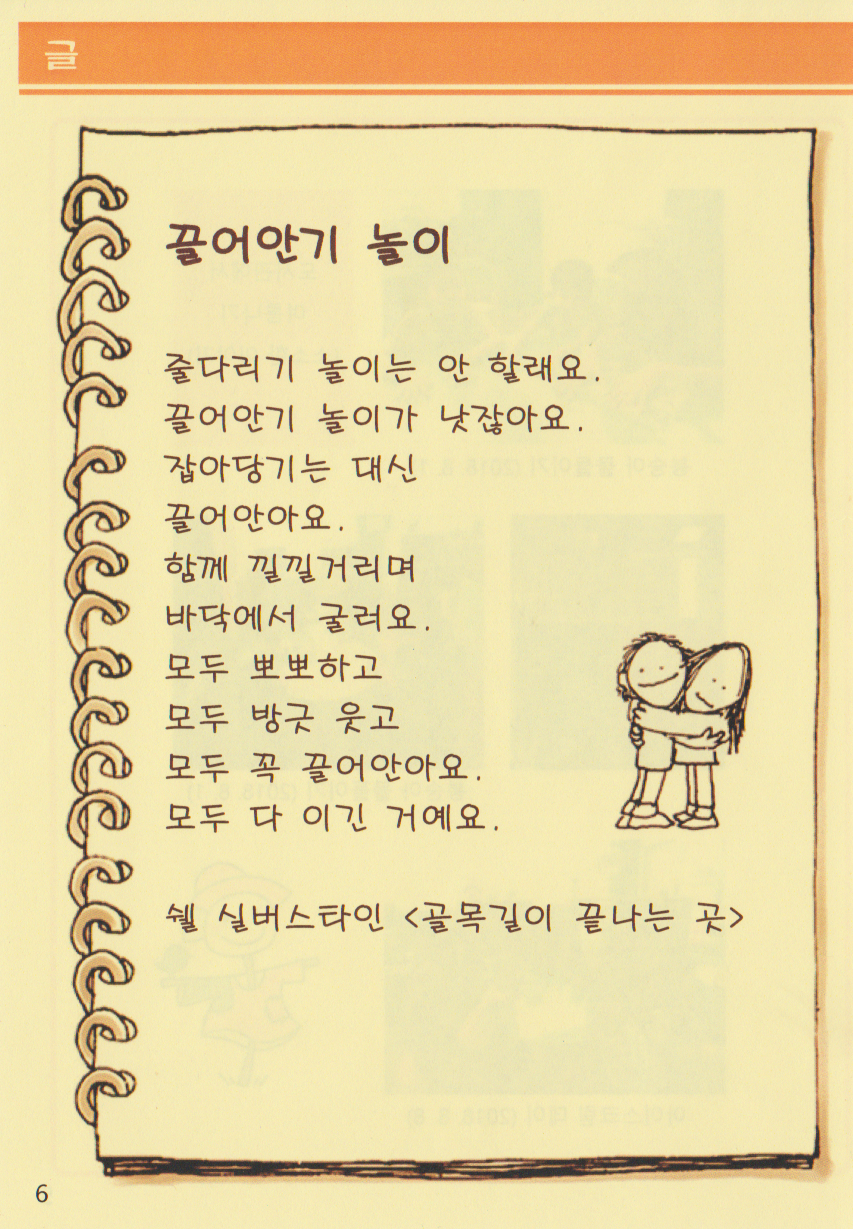 글
끌어안기 놀이
줄다리기 놀이는 안 할래요.
끌어안기 놀이가 낫잖아요.
잡아당기는 대신
끌어안아요.
함께 낄낄거리며
바닥에서 굴러요.
모두 뽀뽀하고
모두 방긋 웃고
모두 꼭 끌어안아요.
모두 다 이긴 거예요.
쉘 실버스타인 <골목길이 끝나는 곳>
6